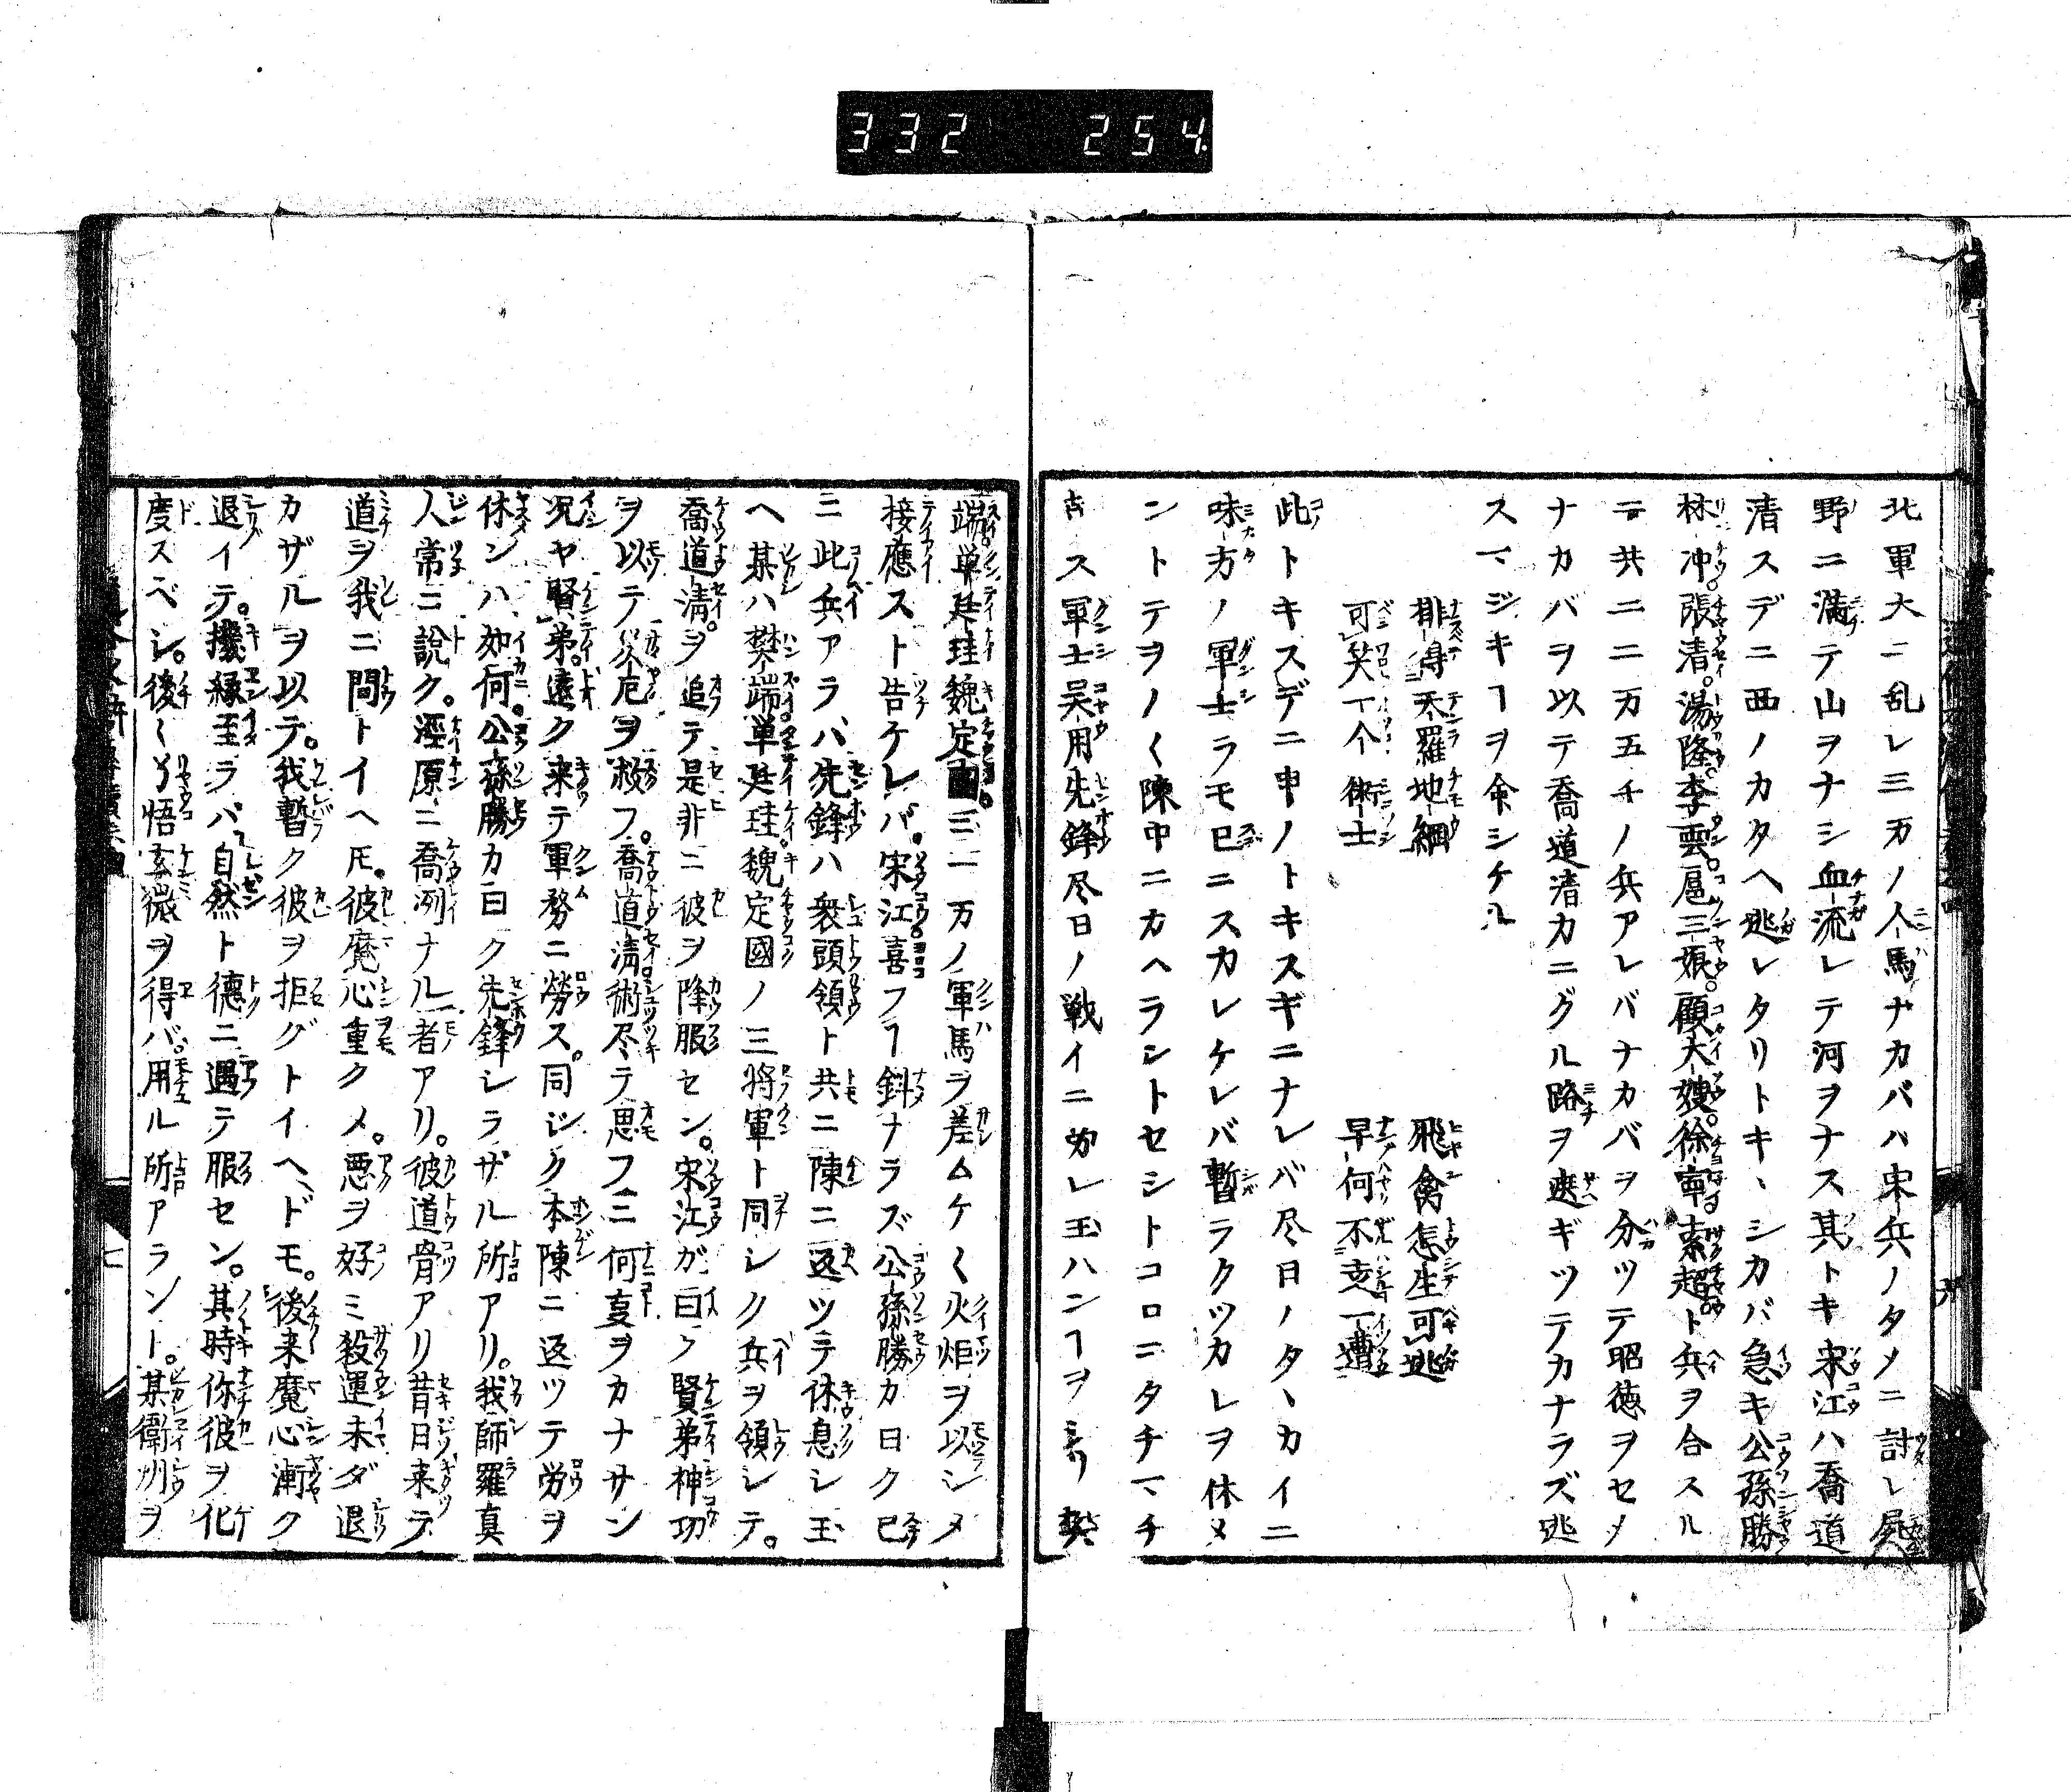 332 254
北軍大ニ乱レ三万ノ人馬ナカバハ宋兵ノタメニ討レ屍
野ニ滿テ山ヲナシ血流レテ河ヲナス其トキ宋江ハ喬道
清スデニ西ノカタヘ逃レタリトキヽシカバ急キ公孫勝
林冲張清湯隆李雲扈三娘顧大嫂徐寧索超ト兵ヲ合スル
ニ共ニ二万五千ノ兵アレバナカバヲ分ツテ昭徳ヲセメ
ナカバヲ以テ喬道清カニグル路ヲ遮ギツテカナラズ逃
スマジキヿヲ命シケル
排得天羅地網　飛禽怎生可逃
可笑一个術士　早何不走一遭
此トキスデニ申ノトキスギニナレバ尽日ノタヽカイニ
味方ノ軍士ラモ已ニスカレケレバ暫ラクツカレヲ休メ
ントテヲノ〱陳中ニカヘラントセシトコロニタチマチ
ス軍士呉用先鋒尽日ノ戦イニカレ玉ハンヿヲ樊
端単廷珪魏定國三二万ノ軍馬ヲ差ムケ〱火炬ヲ以シメ
接應スト告ケレバ宋江喜フヿ斜ナラズ公孫勝カ曰ク已
ニ此兵アラバ先鋒ハ衆頭領ト共ニ陳ニ返ツテ休息シ玉
ヘ某ハ樊端単廷珪魏定國ノ三將軍ト同シク兵ヲ領シテ
喬道清ヲ追テ是非ニ彼ヲ降服セン宋江ガ曰ク賢弟神功
ヲ以テ災厄ヲ救フ喬道清術尽テ思フニ何叓ヲカナサン
况ヤ賢弟遠ク来テ軍務ニ勞ス同シク本陳ニ返ツテ労ヲ
休ンハ如何公孫勝カ曰ク先鋒シラザル所アリ我師羅真
人常ニ說ク涇原ニ喬冽ナル者アリ彼道骨アリ昔日来テ
道ヲ我ニ問トイヘ𪜈彼魔心重クメ悪ヲ好ミ殺運未ダ退
カザルヲ以テ我暫ク彼ヲ拒グトイヘドモ後来魔心漸ク
退イテ機縁至ラバ自然ト德ニ遇テ服セン其時你彼ヲ化
度スベシ後〱了悟玄微ヲ得バ用ル所アラント某衛州ヲ